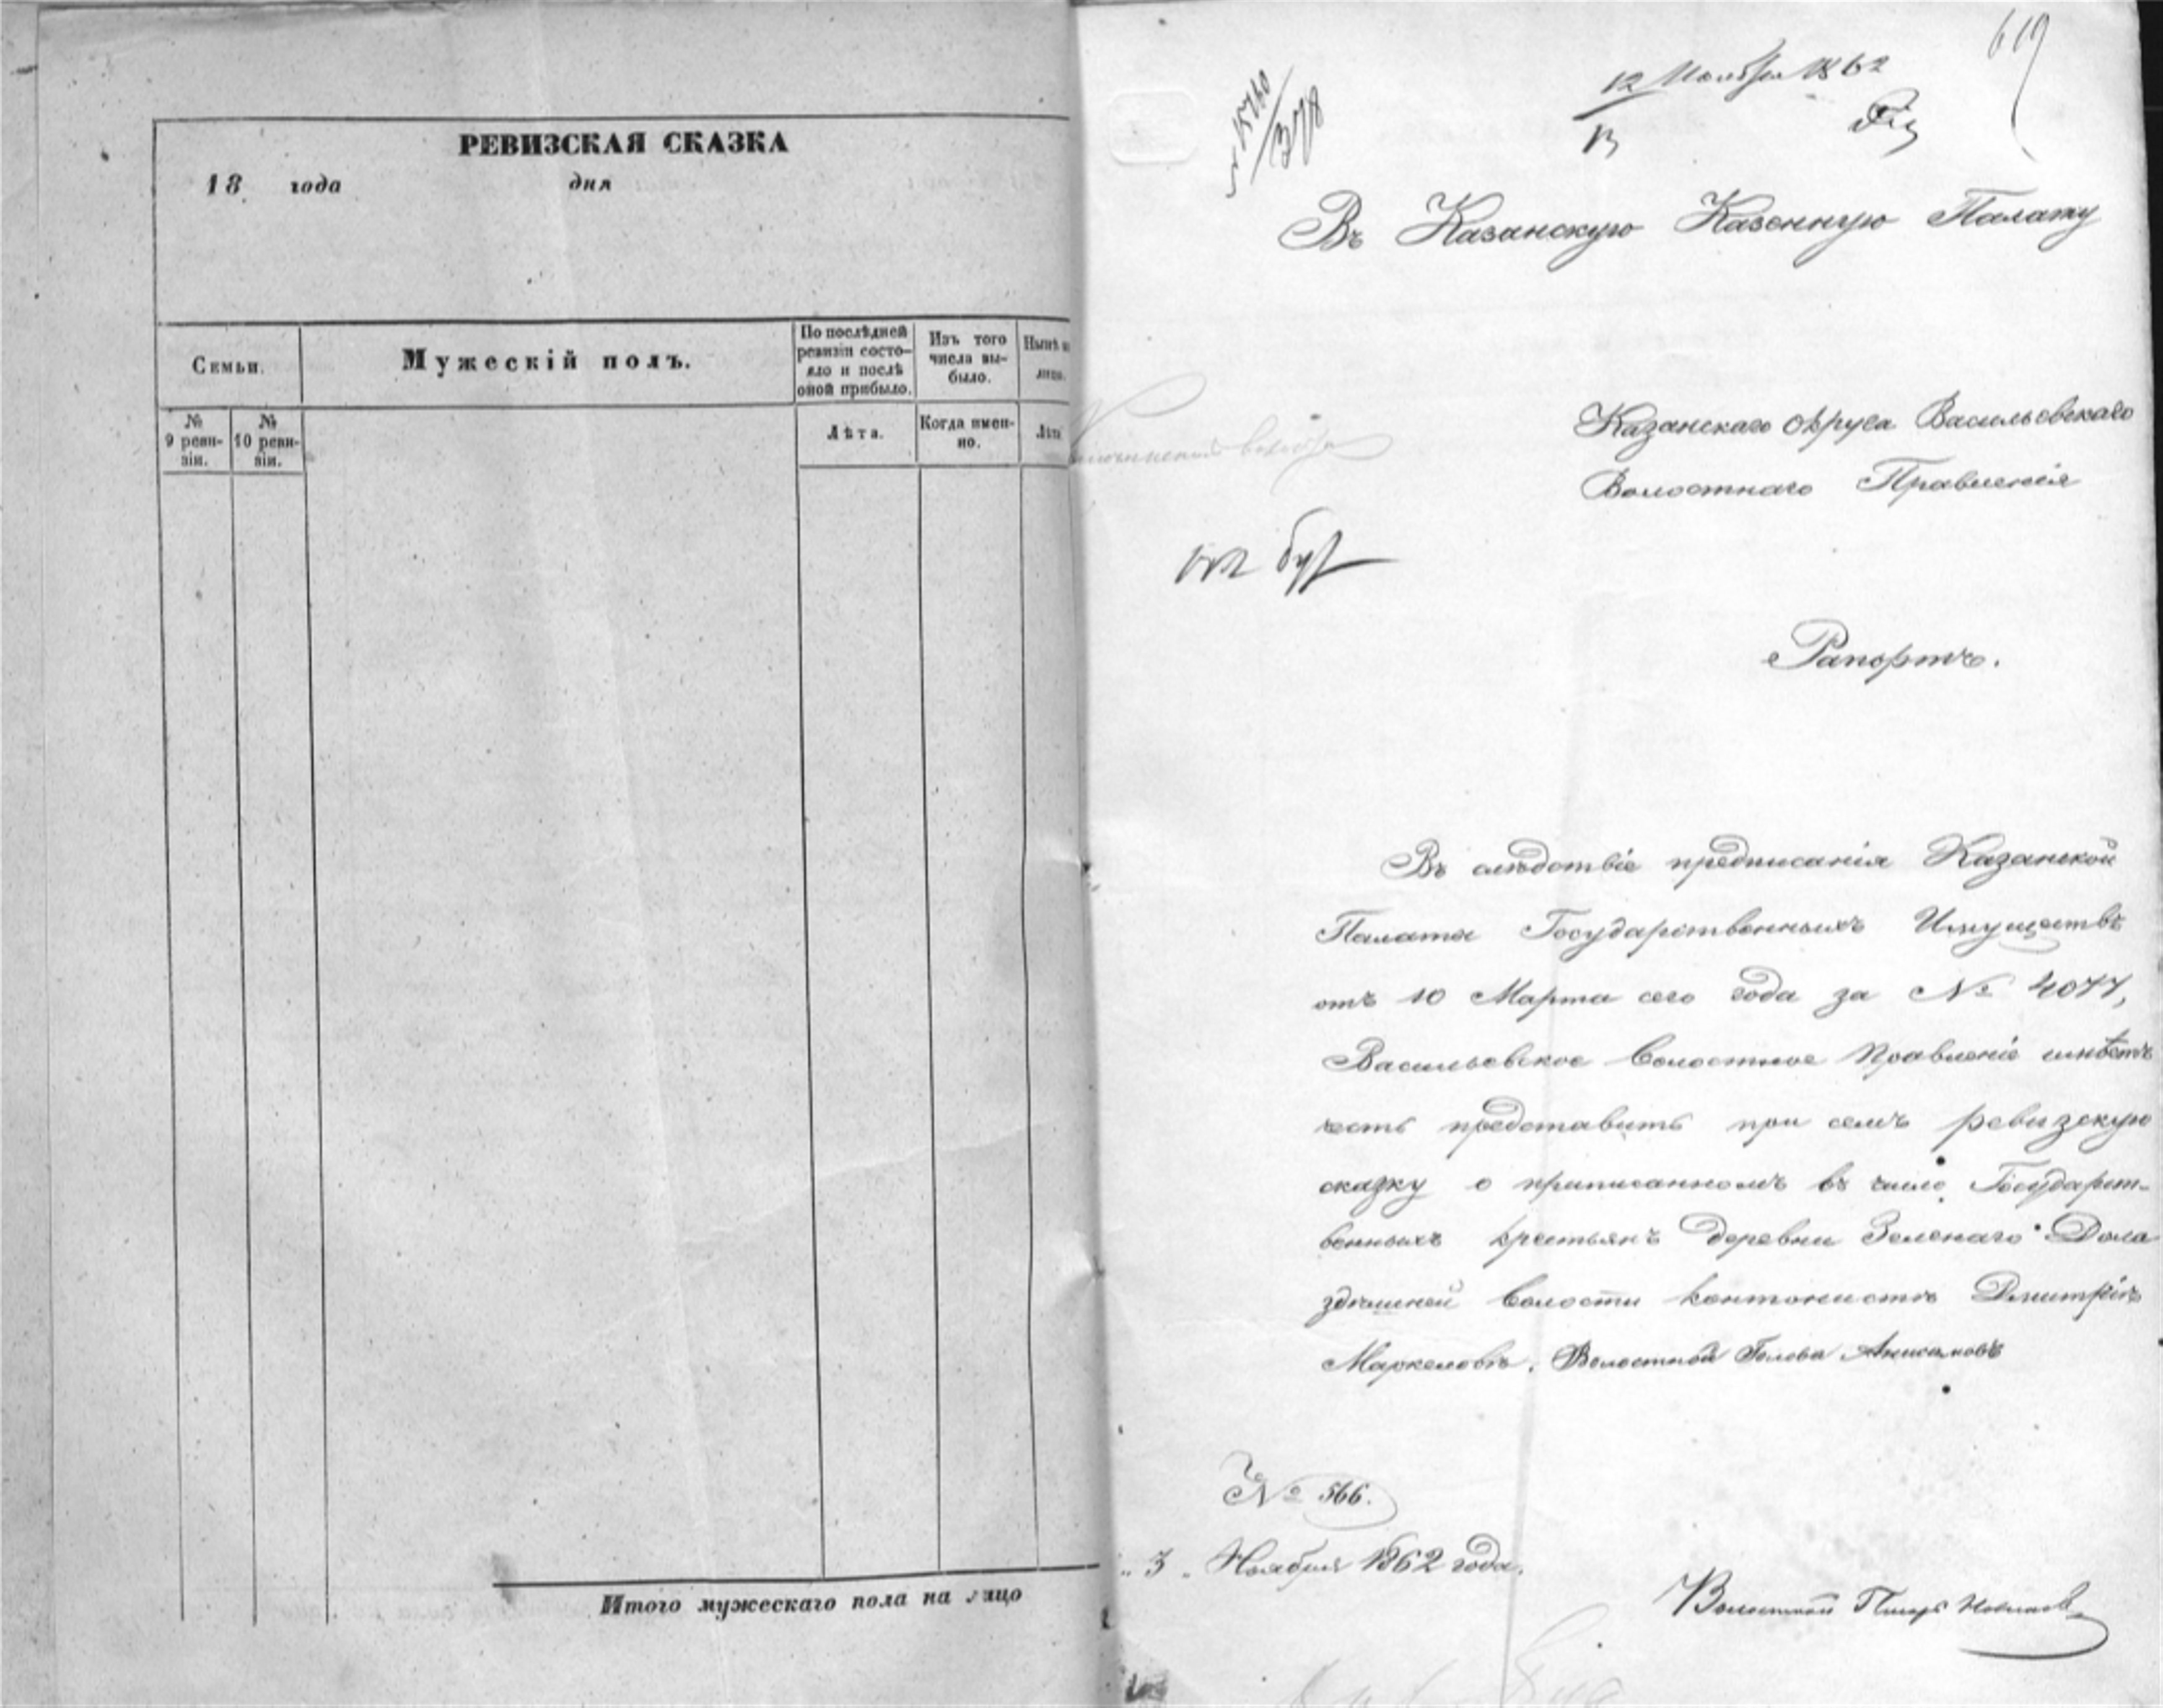 РЕВИЗСКАЯ СКАЗКА
18 года дня
Семьи.
Мужескій полъ.
По послѣдней
ревизіи состо-
яло и послѣ
оной прибыло.
Изъ того
числа вы-
было.
Нынѣ
лицо.
№
9 реви-
зіи.
№
10 реви-
зіи.
Лѣта.
Когда имен-
но.
Лѣт
Итого мужескаго пола на лицо
619
12 Ноября 1862
Въ Казанскую Казенную Палату
Казанскаго округа Васильевскаго
Волостнаго Правленія
Рапортъ.
Въ слѣдствіе предписанія Казанской
Палаты Государственныхъ Имуществъ
отъ 10 Марта сего года за № 4077,
Васильевское Волостное Правленіе имѣетъ
честь представить при семъ ревизскую
сказку о приписанномъ въ число Государст-
венныхъ крестьянъ деревни Зеленаго Дола
здѣшней волости кантонистѣ Дмитріѣ
Маркеловѣ. Волостной Голова Анисимовъ
№ 566.
„3„ Ноября 1862 года.
Волостной Писарь